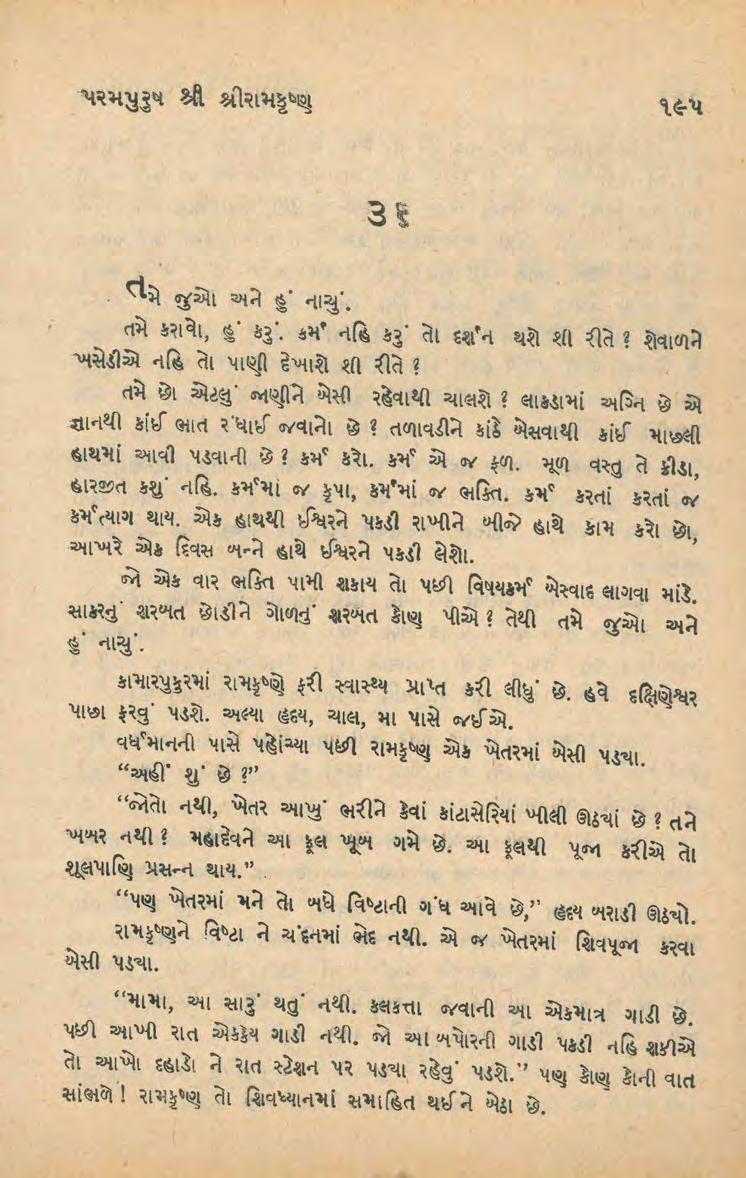 પરમપુરુષ શ્રી શ્રીરામકૃષ્ણ ૧૯૫
૩૬
તમે જુઓ અને હું નાચું.
તમે કરાવો, હું કરું. કર્મ નહિ કરું તો દર્શન થશે શી રીતે ? શેવાળને
ખસેડીએ નહિ તો પાણી દેખાશે શી રીતે ?
તમે છો એટલું જાણીને બેસી રહેવાથી ચાલશે ? લાકડામાં અગ્નિ છે એ
જ્ઞાનથી કાંઈ ભાત રંધાઈ જવાનો છે ? તળાવડીને કાંઠે બેસવાથી કાંઈ માછલી
હાથમાં આવી પડવાની છે ? કર્મ કરો. કર્મ એ જ ફળ. મૂળ વસ્તુ તે ક્રીડા,
હારજીત કશું નહિ. કર્મમાં જ કૃપા, કર્મમાં જ ભક્તિ. કર્મ કરતાં કરતાં જ
કર્મત્યાગ થાય. એક હાથથી ઈશ્વરને પકડી રાખીને બીજે હાથે કામ કરો છો,
આખરે એક દિવસ બન્ને હાથે ઈશ્વરને પકડી લેશો.
જો એક વાર ભક્તિ પામી શકાય તો પછી વિષયકર્મ બેસ્વાદ લાગવા માંડે.
સાકરનું શરબત છોડીને ગોળનું શરબત કોણ પીએ ? તેથી તમે જુઓ અને
હું નાચું.
કામારપુકુરમાં રામકૃષ્ણે ફરી સ્વાસ્થ્ય પ્રાપ્ત કરી લીધું છે. હવે દક્ષિણેશ્વર
પાછા ફરવું પડશે. અલ્યા હૃદય, ચાલ, મા પાસે જઈએ.
વર્ધમાનની પાસે પહોંચ્યા પછી રામકૃષ્ણ એક ખેતરમાં બેસી પડયા.
“અહીં શું છે ?”
“જોતો નથી, ખેતર આખું ભરીને કેવાં કાંટાસેરિયાં ખીલી ઊઠયાં છે ? તને
ખબર નથી ? મહાદેવને આ ફૂલ ખૂબ ગમે છે. આ ફૂલથી પૂજા કરીએ તો
શૂલપાણિ પ્રસન્ન થાય.”
“પણ ખેતરમાં મને તો બધે વિષ્ટાની ગંધ આવે છે,” હૃદય બરાડી ઊઠયો.
રામકૃષ્ણને વિષ્ટા ને ચંદનમાં ભેદ નથી. એ જ ખેતરમાં શિવપૂજા કરવા
બેસી પડયા.
“મામા, આ સારું થતું નથી. કલકત્તા જવાની આ એકમાત્ર ગાડી છે.
પછી આખી રાત એક્કેય ગાડી નથી. જો આ બપોરની ગાડી પકડી નહિ શકીએ
તો આખો દહાડો ને રાત સ્ટેશન પર પડયા રહેવું પડશે.” પણ કોણ કોની વાત
સાંભળે ! રામકૃષ્ણ તો શિવધ્યાનમાં સમાહિત થઈને બેઠા છે.